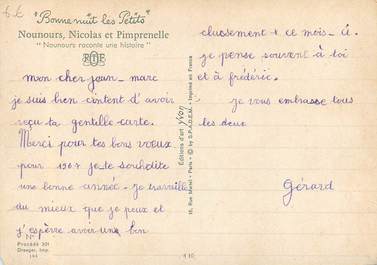 "Bonne nuit les Petits"
Nounours, Nicolas et Pimprenelle
"Nounours raconte une histoire"
mon cher jean-marc
je suis bien content d'avoir
reçu ta gentille carte.
Merci pour tes bons vœux
pour 1967 je te souhaite
une bonne année. je travaille
du mieux que je peux et
j'espère avoir un bon
N°
Procédé 301
Draeger, Imp.
144
Editions d'art yvon
15, Rue Martel - Paris - © by S.P.A.D.E.M. - Imprimé en France
classement ce mois-ci.
je pense souvent à toi
et à frédéric.
je vous embrasse tous
les deux
Gérard